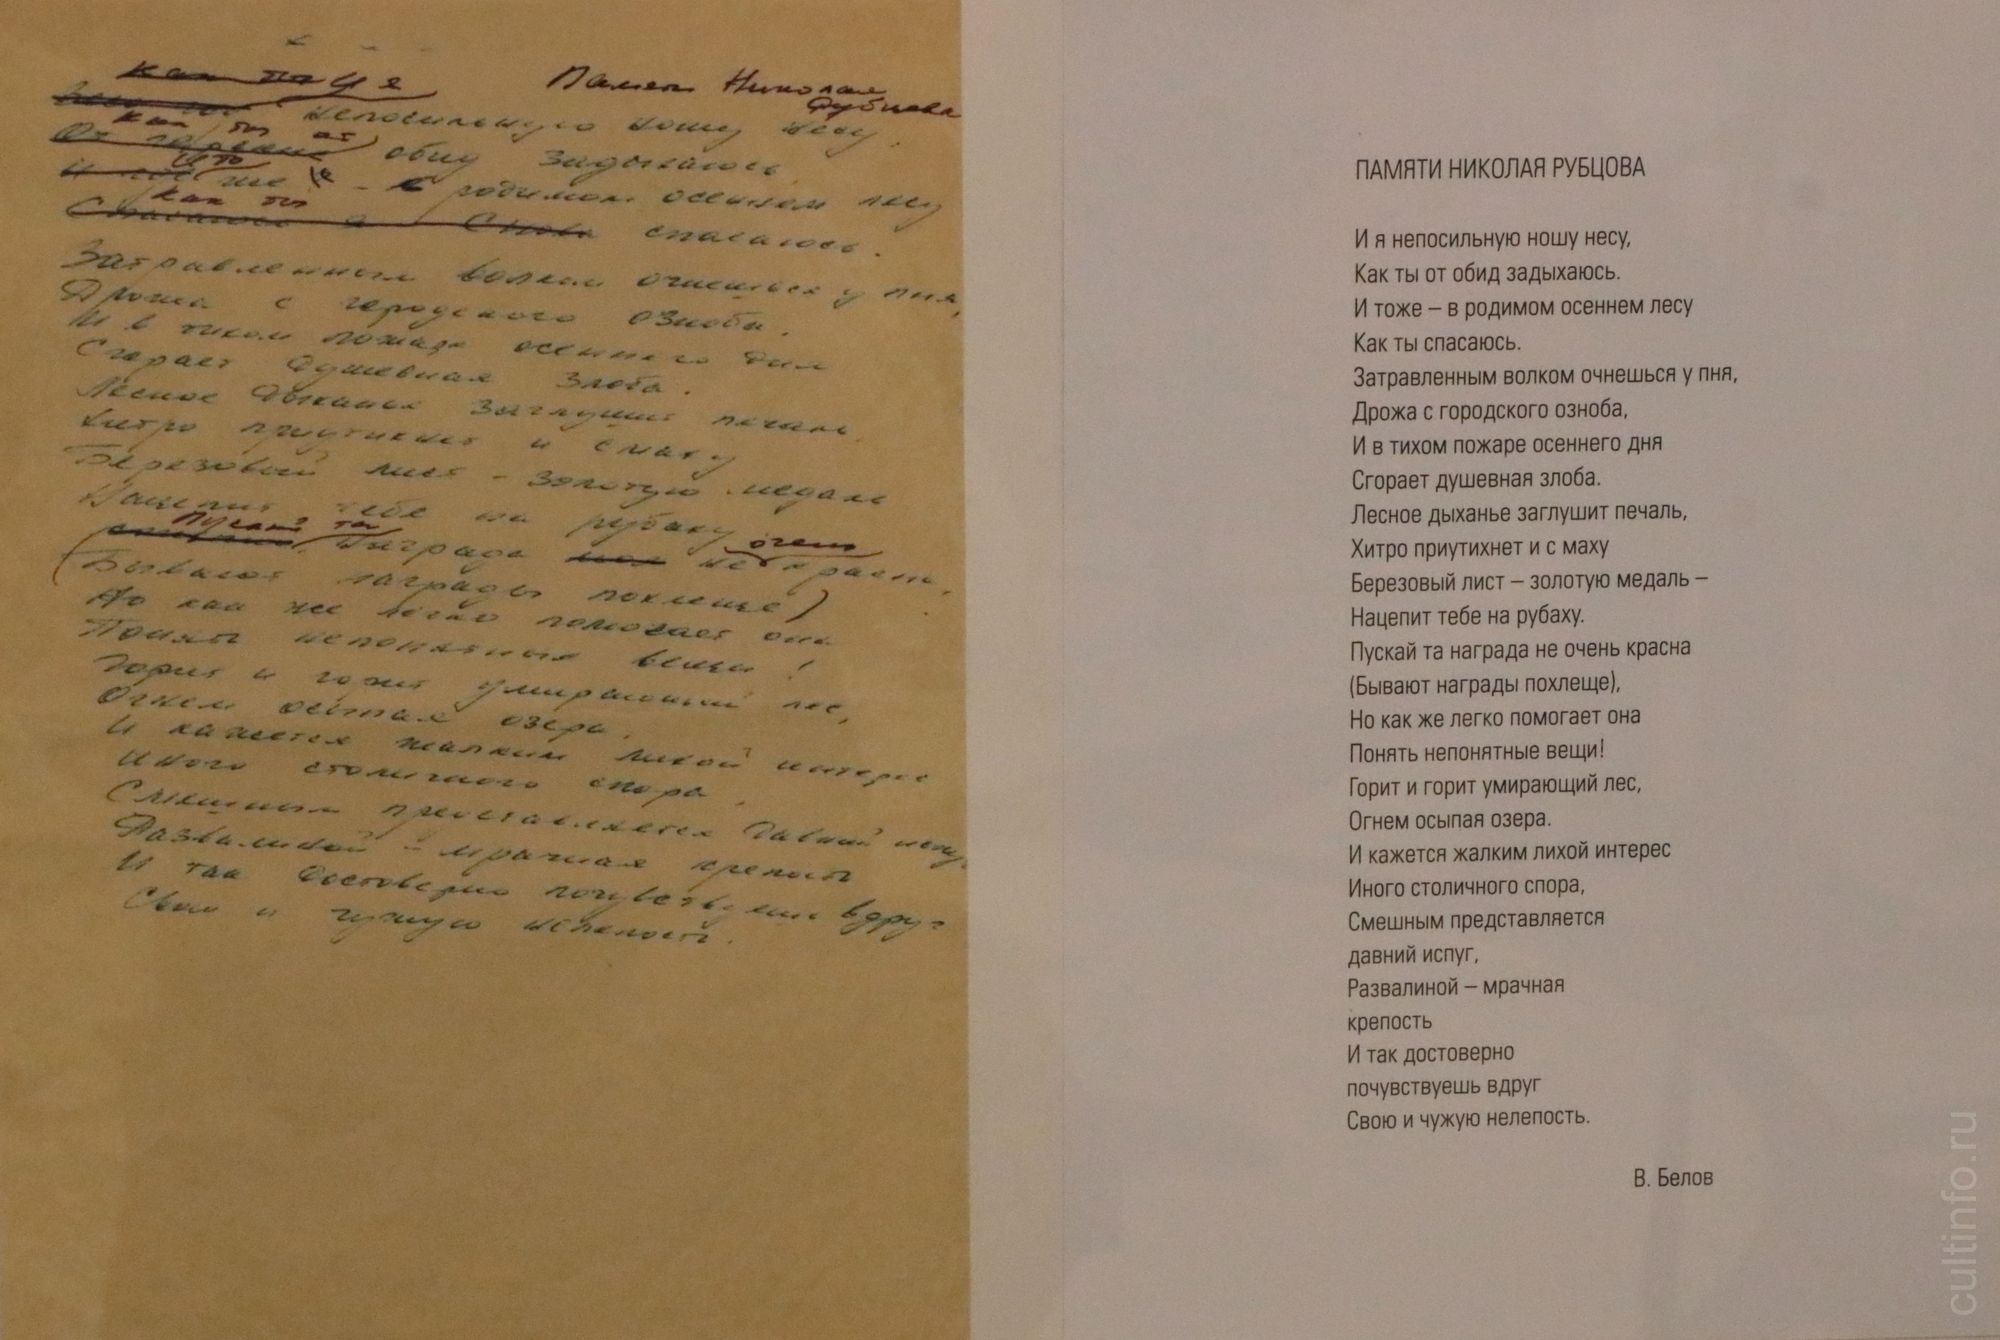 как ты И я
Памяти Николая
Рубцова
непосильную ношу несу
Как ты от
От обид задыхаюсь
И тоже - в родимом осеннем лесу
как ты
Спасаюсь я снова спасаюсь.
Затравленным волком очнешься у пня,
Дрожа с городского озноба.
И в тихом пожаре осеннего дня
Сгорает душевная злоба.
Лесное дыханье заглушит печаль
Хитро приутихнет и с маху
Березовый лист - золотую медаль
Нацепит тебе на рубаху
Пускай та очень
Награда моя не красна,
(Бывают награды похлеще)
Но как же легко помогает она
Понять непонятные вещи!
Горит и горит умирающий лес,
Огнем осыпая озера.
И кажется жалким лихой интерес
Иного столичного спора.
Смешным представляется давний испуг
Развалиной - мрачная крепость
И так достоверно почувствуешь вдруг
Свою и чужую нелепость.
ПАМЯТИ НИКОЛАЯ РУБЦОВА
И я непосильную ношу несу,
Как ты от обид задыхаюсь.
И тоже – в родимом осеннем лесу
Как ты спасаюсь.
Затравленным волком очнешься у пня,
Дрожа с городского озноба,
И в тихом пожаре осеннего дня
Сгорает душевная злоба.
Лесное дыханье заглушит печаль,
Хитро приутихнет и с маху
Березовый лист – золотую медаль –
Нацепит тебе на рубаху.
Пускай та награда не очень красна
(Бывают награды похлеще),
Но как же легко помогает она
Понять непонятные вещи!
Горит и горит умирающий лес,
Огнем осыпая озера.
И кажется жалким лихой интерес
Иного столичного спора,
Смешным представляется
давний испуг,
Развалиной – мрачная
крепость
И так достоверно
почувствуешь вдруг
Свою и чужую нелепость.
В. Белов
cultinfo.ru